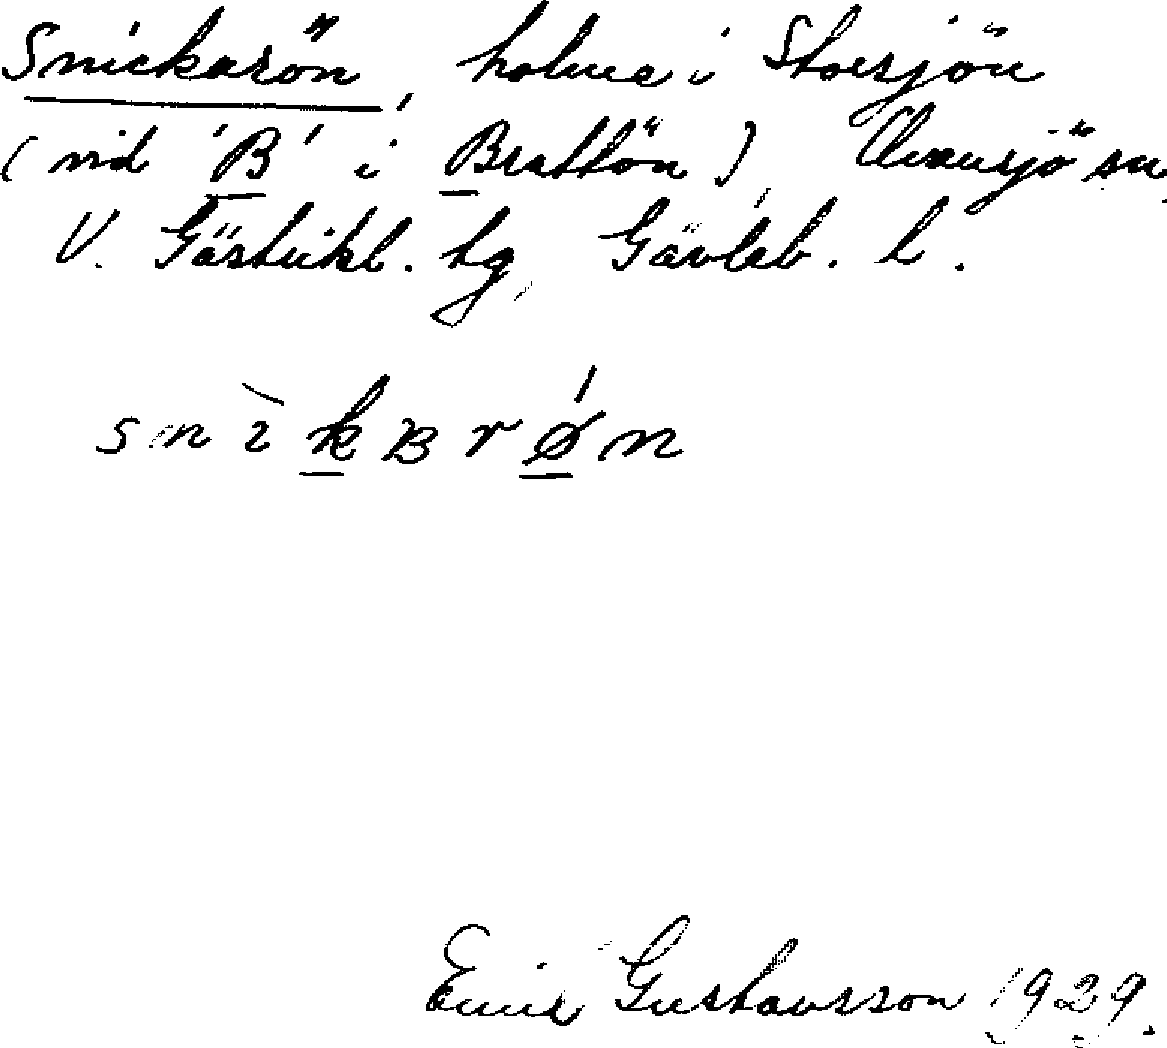 Snickarön, holme i Storsjön
(vid 'B' i Brattön), Ovansjö sn,
V. Gästrikl. tg, Gävleb. l.
snìkʙrǿn
Emil Gustavsson 1929.